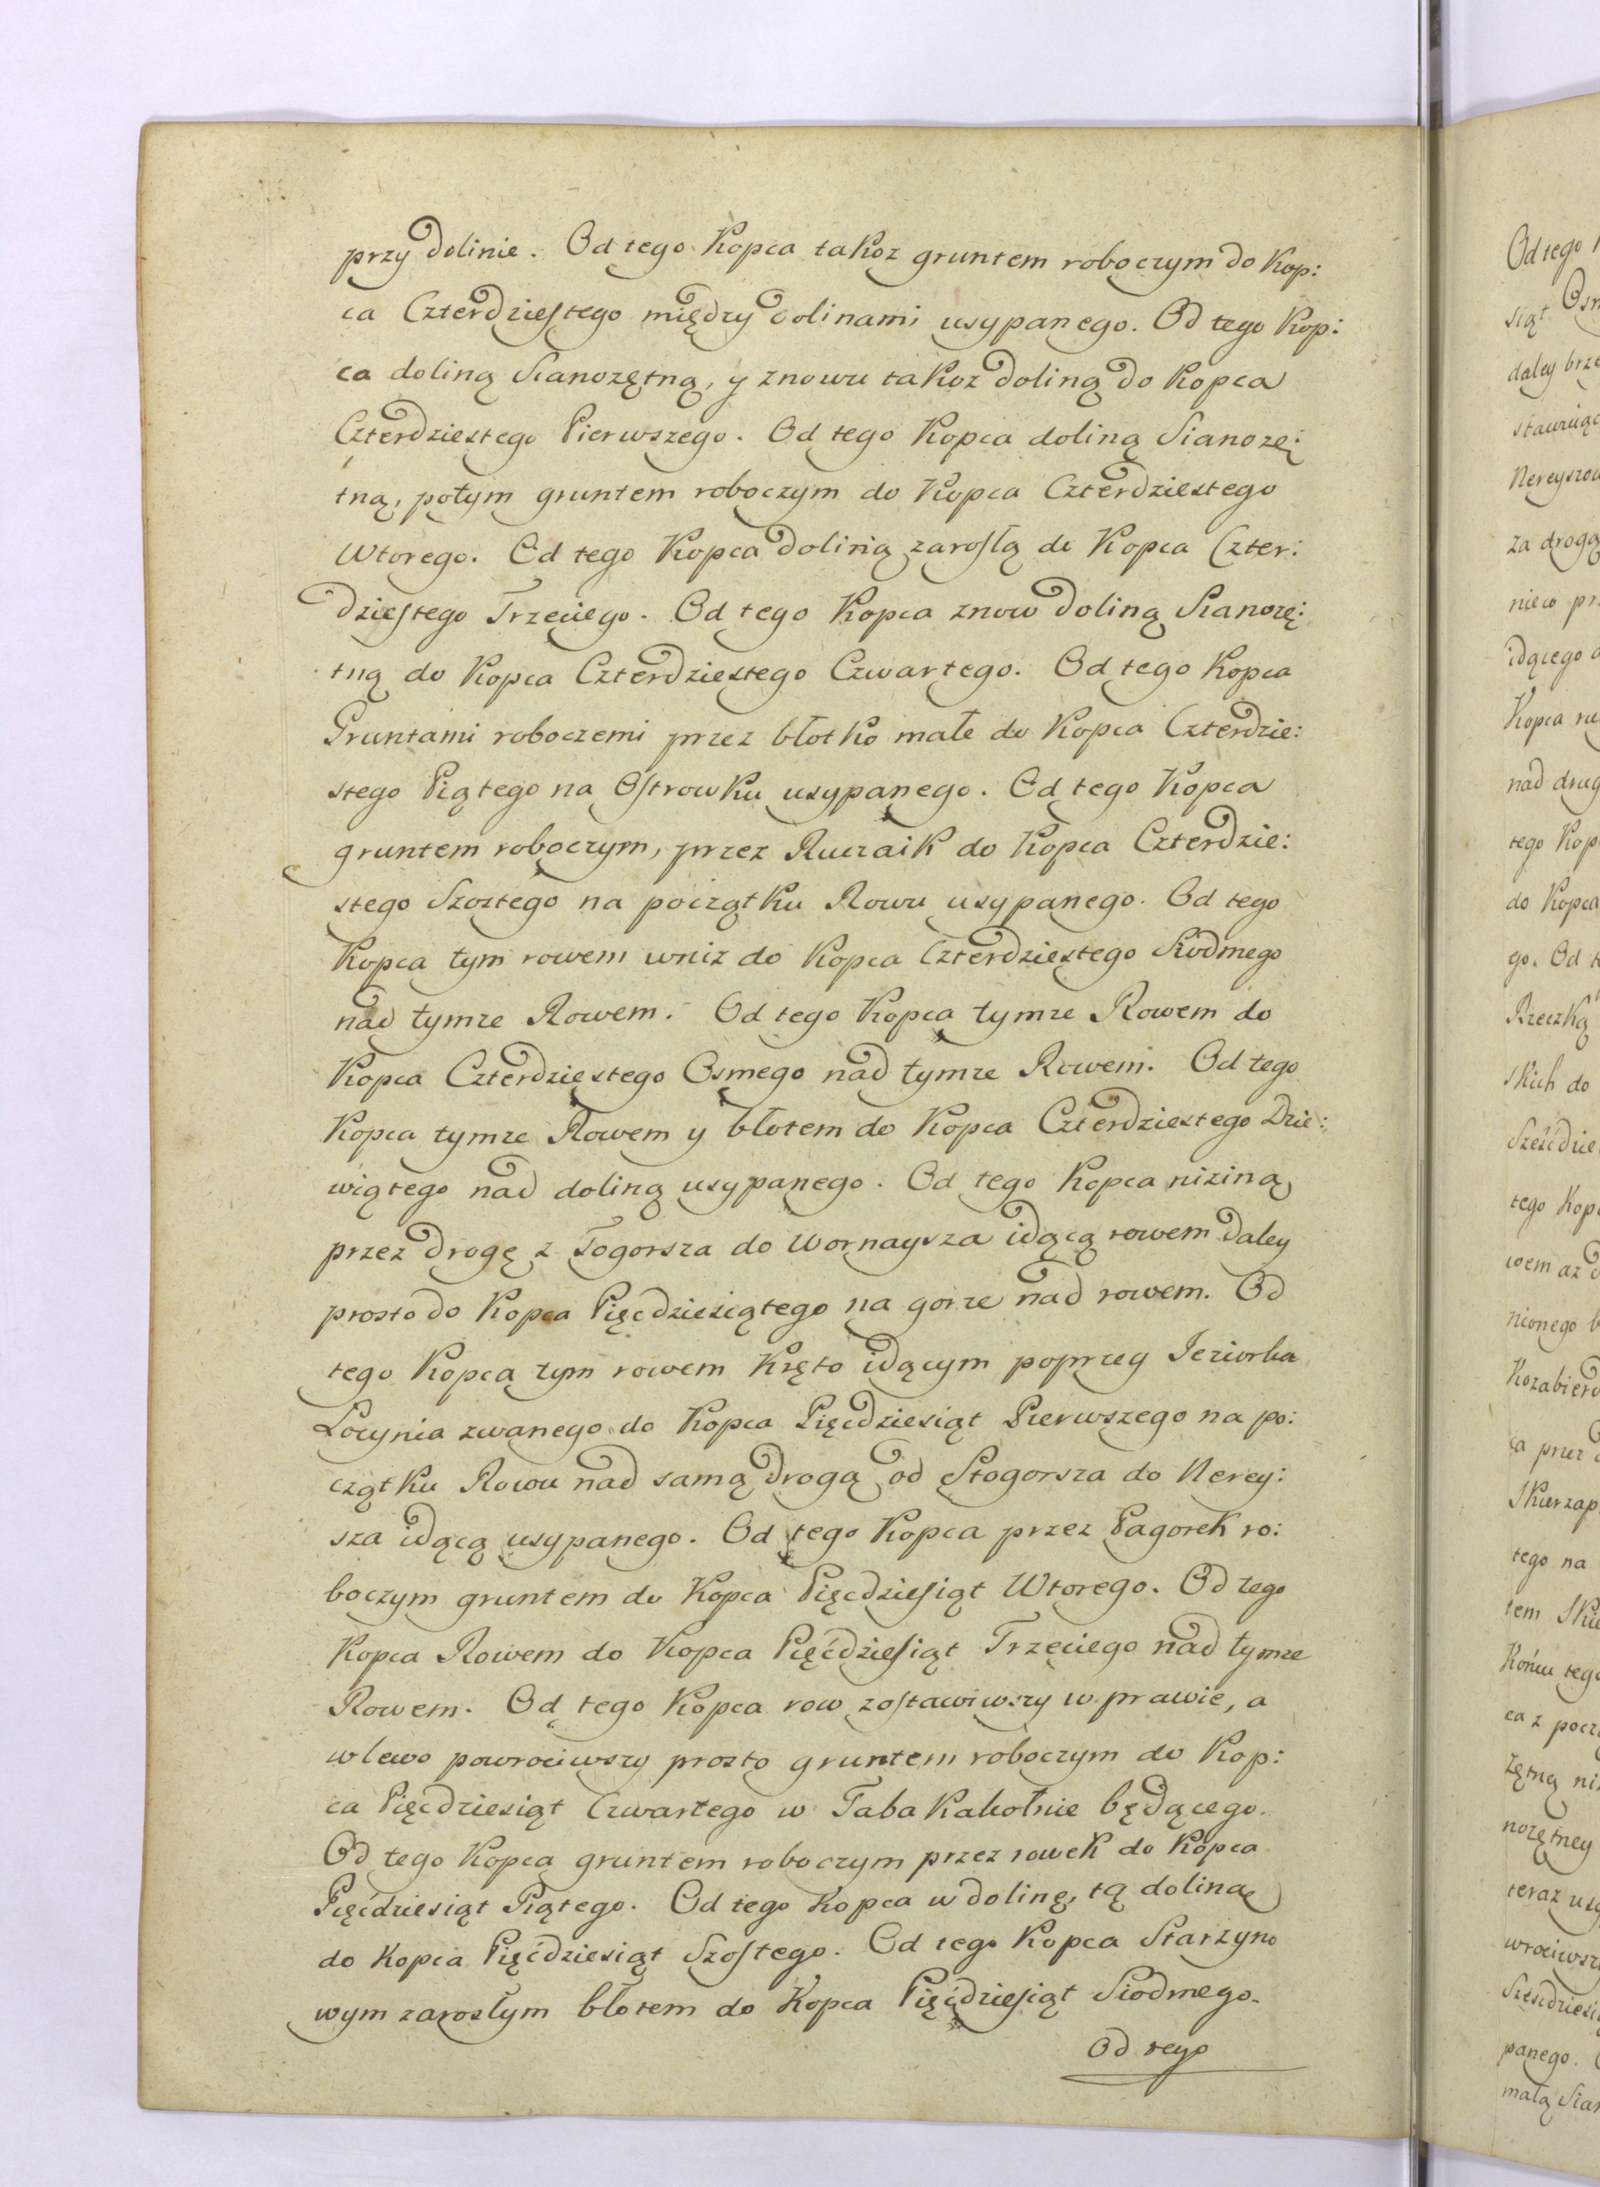 przy dolinie. Od tego Kopca takoz gruntem roboczym do Kop:
ca Czterdziestego między dolinami usypanego. Od tego Kop:
ca doliną Sianozętną, y znowu takoz doliną do Kopca
Czterdziestego Pierwszego. Od tego Kopca doliną Sianozę:
tną, potym gruntem roboczym do Kopca Czterdziestego
Wtorego. Od tego Kopca doliną zarosłą do Kopca Czter:
dziestego Trzeciego. Od tego Kopca znow doliną Sianozę:
tną do Kopca Czterdziestego Czwartego. Od tego Kopca
Gruntami roboczemi przez błotko małe do Kopca Czterdzie:
stego Piątego na Ostrowku usypanego. Od tego Kopca
gruntem roboczym, przez Ruczaik do Kopca Czterdzie:
stego Szoztego na początku Rowu usypanego. Od tego
Kopca tym rowem wniz do Kopca Czterdziestego Siodmego
nad tymze Rowem. Od tego Kopca tymze Rowem do
Kopca Czterdziestego Osmego nad tymze Rowem. Od tego
Kopca tymze Rowem y błotem do Kopca Czterdziestego Dzie:
wiątego nad doliną usypanego. Od tego Kopca niziną
przez drogę z Togorsza do Wornaysza idącą rowem daley
prosto do Kopca Pięcdziesiątego na gorze nad rowem. Od
tego Kopca tym rowem Kręto idącym poprzeg Jeziorka
Locynia zwanego do Kopca Pięcdziesiąt Pierwszego na po:
czątku Rowu nad samą drogą od Stogorsza do Nerey:
sza idącą usypanego. Od tego Kopca przez Pagorek ro:
boczym gruntem do Kopca Pięcdziesiąt Wtorego. Od tego
Kopca Rowem do Kopca Pięćdziesiąt Trzeciego nad tymze
Rowem. Od tego Kopca row zostawiwszy w prawie, a
w lewo powrociwszy prosto gruntem roboczym do Kop:
ca Pięcdziesiąt Czwartego w Tabakalotnie będącego.
Od tego Kopca gruntem roboczym przez rowek do Kopca
Pięćdziesiąt Piątego. Od tego Kopca w dolinę, tą doliną
do Kopca Pięćdziesiąt Szostego. Od tego Kopca Starzyno
wym zarosłym błotem do Kopca Pięćdziesiąt Siodmego.
Od tego
Od tego
siąt
daley
za drogą
idącego
Kopca
nad
tego
do Kopca
go. Od
Rzeczką
skich do
tego
nionego
tego na
tem
teraz
panego.
małą